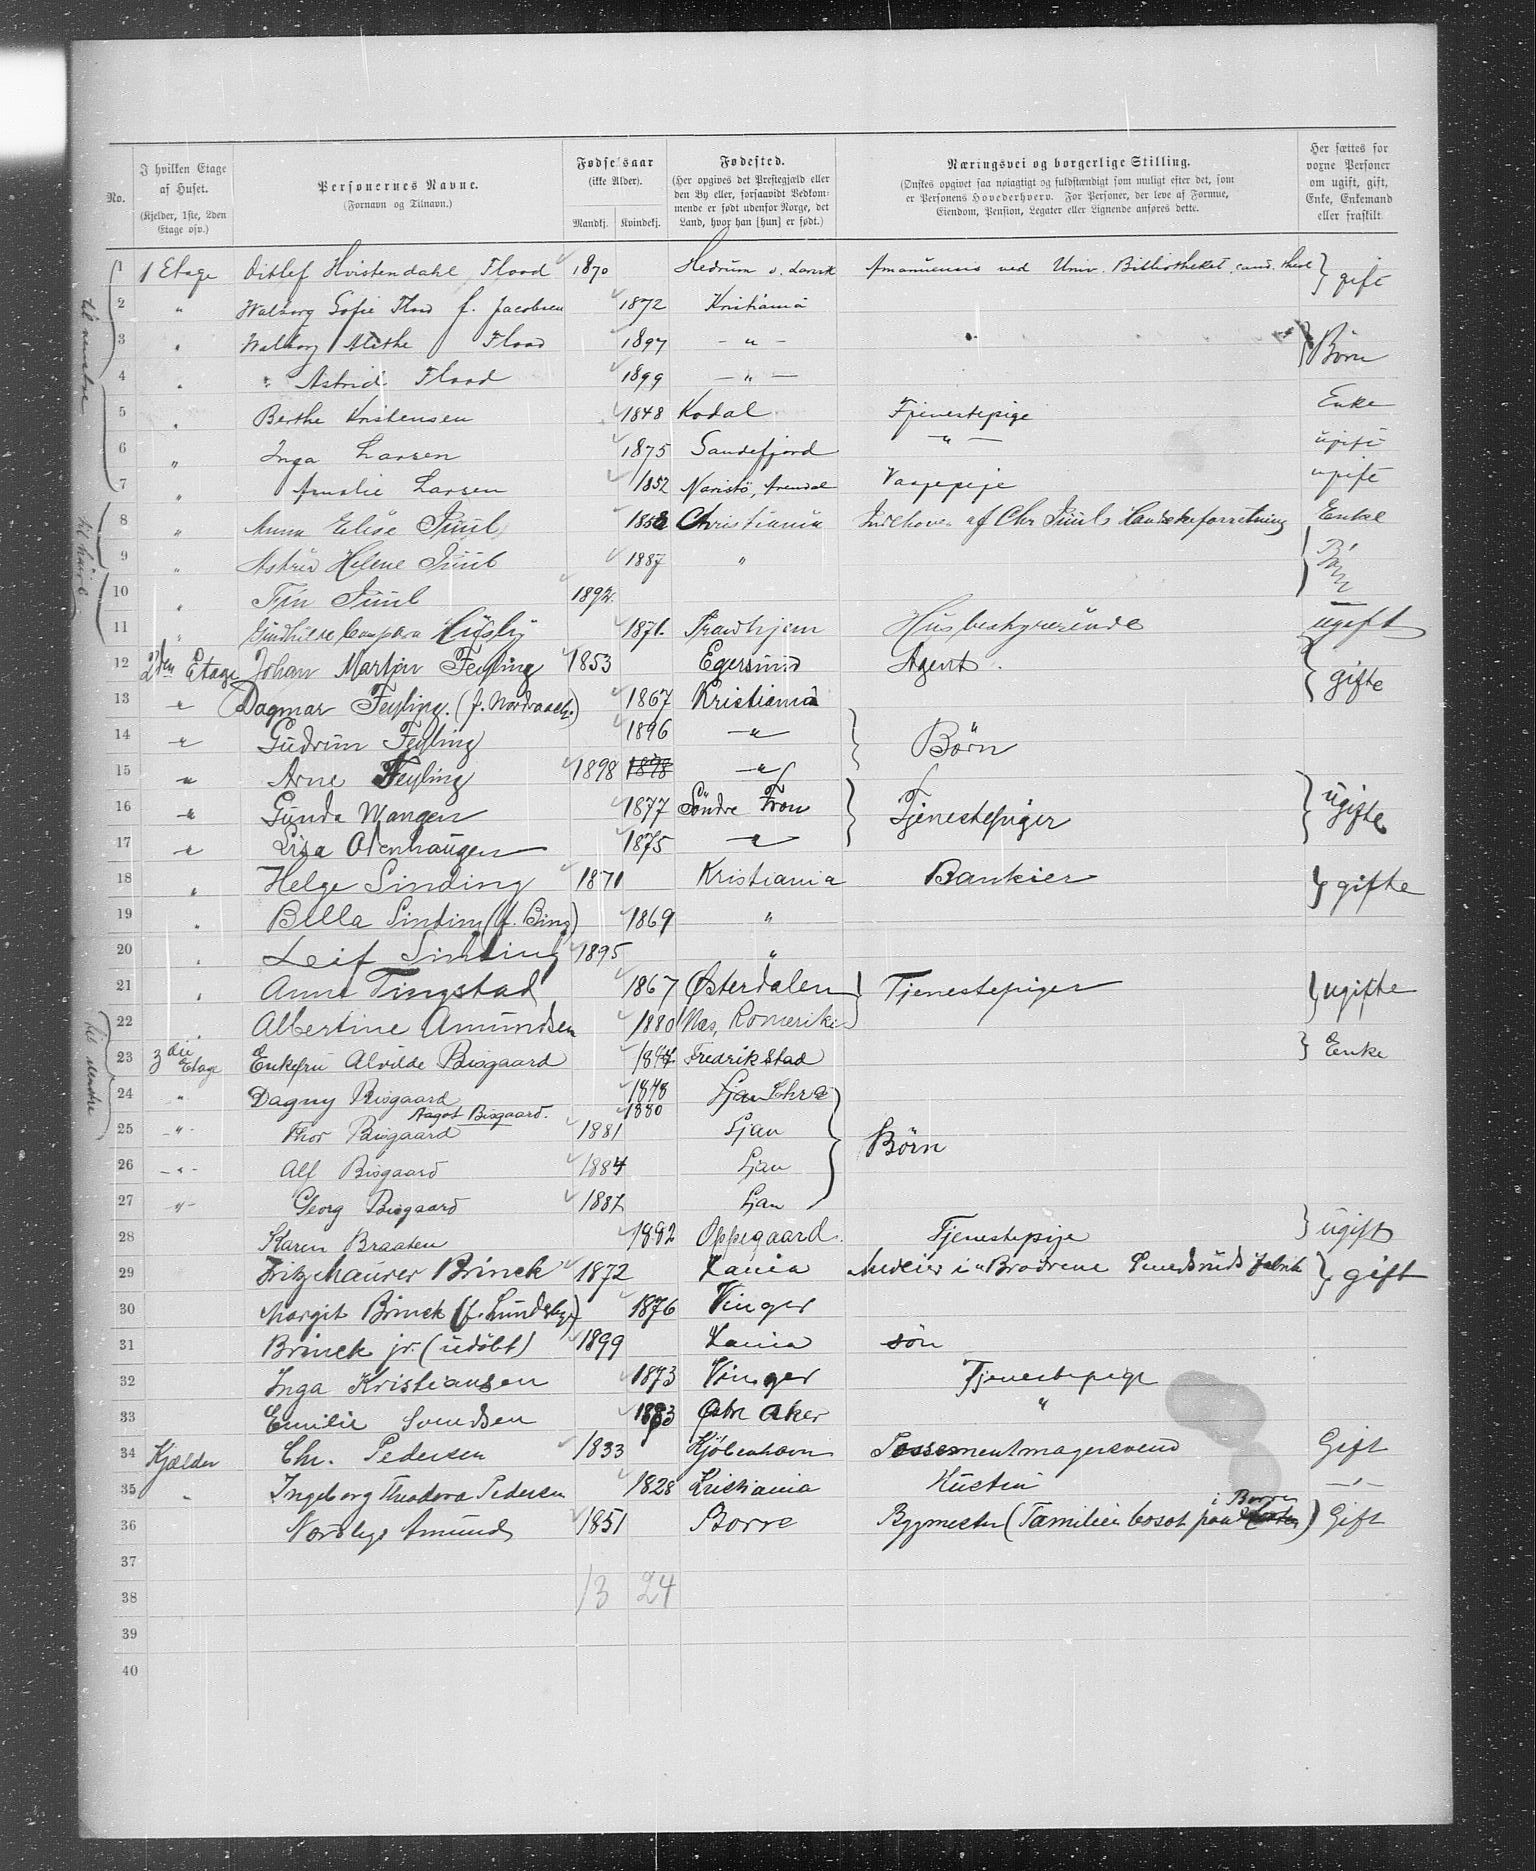 No.
I hvilken Etage af Huset. (Kjelder, 1ste, 2den Etage osv.)
Personernes Navne. (Fornavn og Tilnavn.)
Fødselsaar (ikke Alder). Mandkj. Kvindekj.
Fødested. (Her opgives det Prestegjæld eller den By eller, forsaavidt Vedkommende er født udenfor Norge, det Land, hvor han [hun] er født.)
Næringsvei og borgerlige Stilling. (Ønskes opgivet saa nøiagtigt og fuldstændigt som muligt efter det, som er Personens Hovederhverv. For Personer, der leve af Formue, Eiendom, Pension, Legater eller Lignende anføres dette.
Her sættes for voxne Personer om ugift, gift, Enke, Enkemand eller fraskilt
til venstre
1 1 Etage Ditlef Hvistendahl Flood 1870 Hedrum v. Larvik Amanuensis ved Univ. Bibliotheket, cand. theol gift
2 " Walborg Sofie Flood f. Jacobsen 1872 Kristiania
3 " Walborg Flood 1897 - " - Børn
4 " " Astrid Flood 1899 - " -
5 " Berthe Kristensen 1848 Kodal Tjenestepige Enke
6 " Inga Larsen 1875 Sandefjord - " - ugift
7 " Amalie Larsen 1852 Narestø, Arendal Vaagepige ugift
8 " Anna Elise Juul 1852 Christiania Indehaver af Chr Juuls Handskeforretning Enke
9 " Astrid Helene Juul 1887 " Børn
10 " Juul 1892
11 " Høgsby 1871 Trondhjem Husbestyrerinde ugift
12 2den Etage Johan Martin Feyling 1853 Egersund Agent. gifte
13 " Dagmar Feyling. (f. Nordraach.) 1867 Kristiania
14 " Gudrun Feyling 1896 " Børn
15 " Arne Feyling 1898 1898 "
16 " Gunda Wangen 1877 Søndre Fron Tjenestepiger ugifte
17 " Lisa 1875 "
18 " Helge Sinding 1871 Kristiania Bankier gifte
19 " Bella Sinding (f. Bing) 1869 "
20 " Leif Sinding 1895 "
21 " Anne Tingstad 1867 Østerdalen Tjenestepiger ugifte
22 " Albertine Amundsen 1880 Næs, Romerike
til venstre
23 3die Etage Enkefru Alvilde Bisgaard Fredrikstad Enke
24 " Dagny Bisgaard 1878 Ljan Chra
Aagot Bisgaard. 1880
25 - " - Thor Bisgaard 1881 Ljan Børn
26 - " - Alf Bisgaard 1884 Ljan
27 " - Georg Bisgaard 1887 Ljan
28 Karen Braaten 1882 Oppegaard. Tjenestepige ugift
29 Fritz Maurer Brinck 1872 Xania gift
30 Margit Brinck (f. Lundeby) 1876 Vinger
31 Brinck jr. (udøbt) 1899 Xania søn
32 Inga Kristiansen 1873 Vinger Tjenestepige
33 Emilie Svendsen 1883 Østre Aker "
34 Kjælder Chr. Pedersen 1833 Kjøbenhavn Possementmagersvend Gift
35 " Ingeborg Theodora Pedersen 1828 Kristiania Hustru - " -
36 Nordby Amund 1851 Borre Bygmester (Familien bosat paa i Borre) Gift
37
38 13 24
39
40